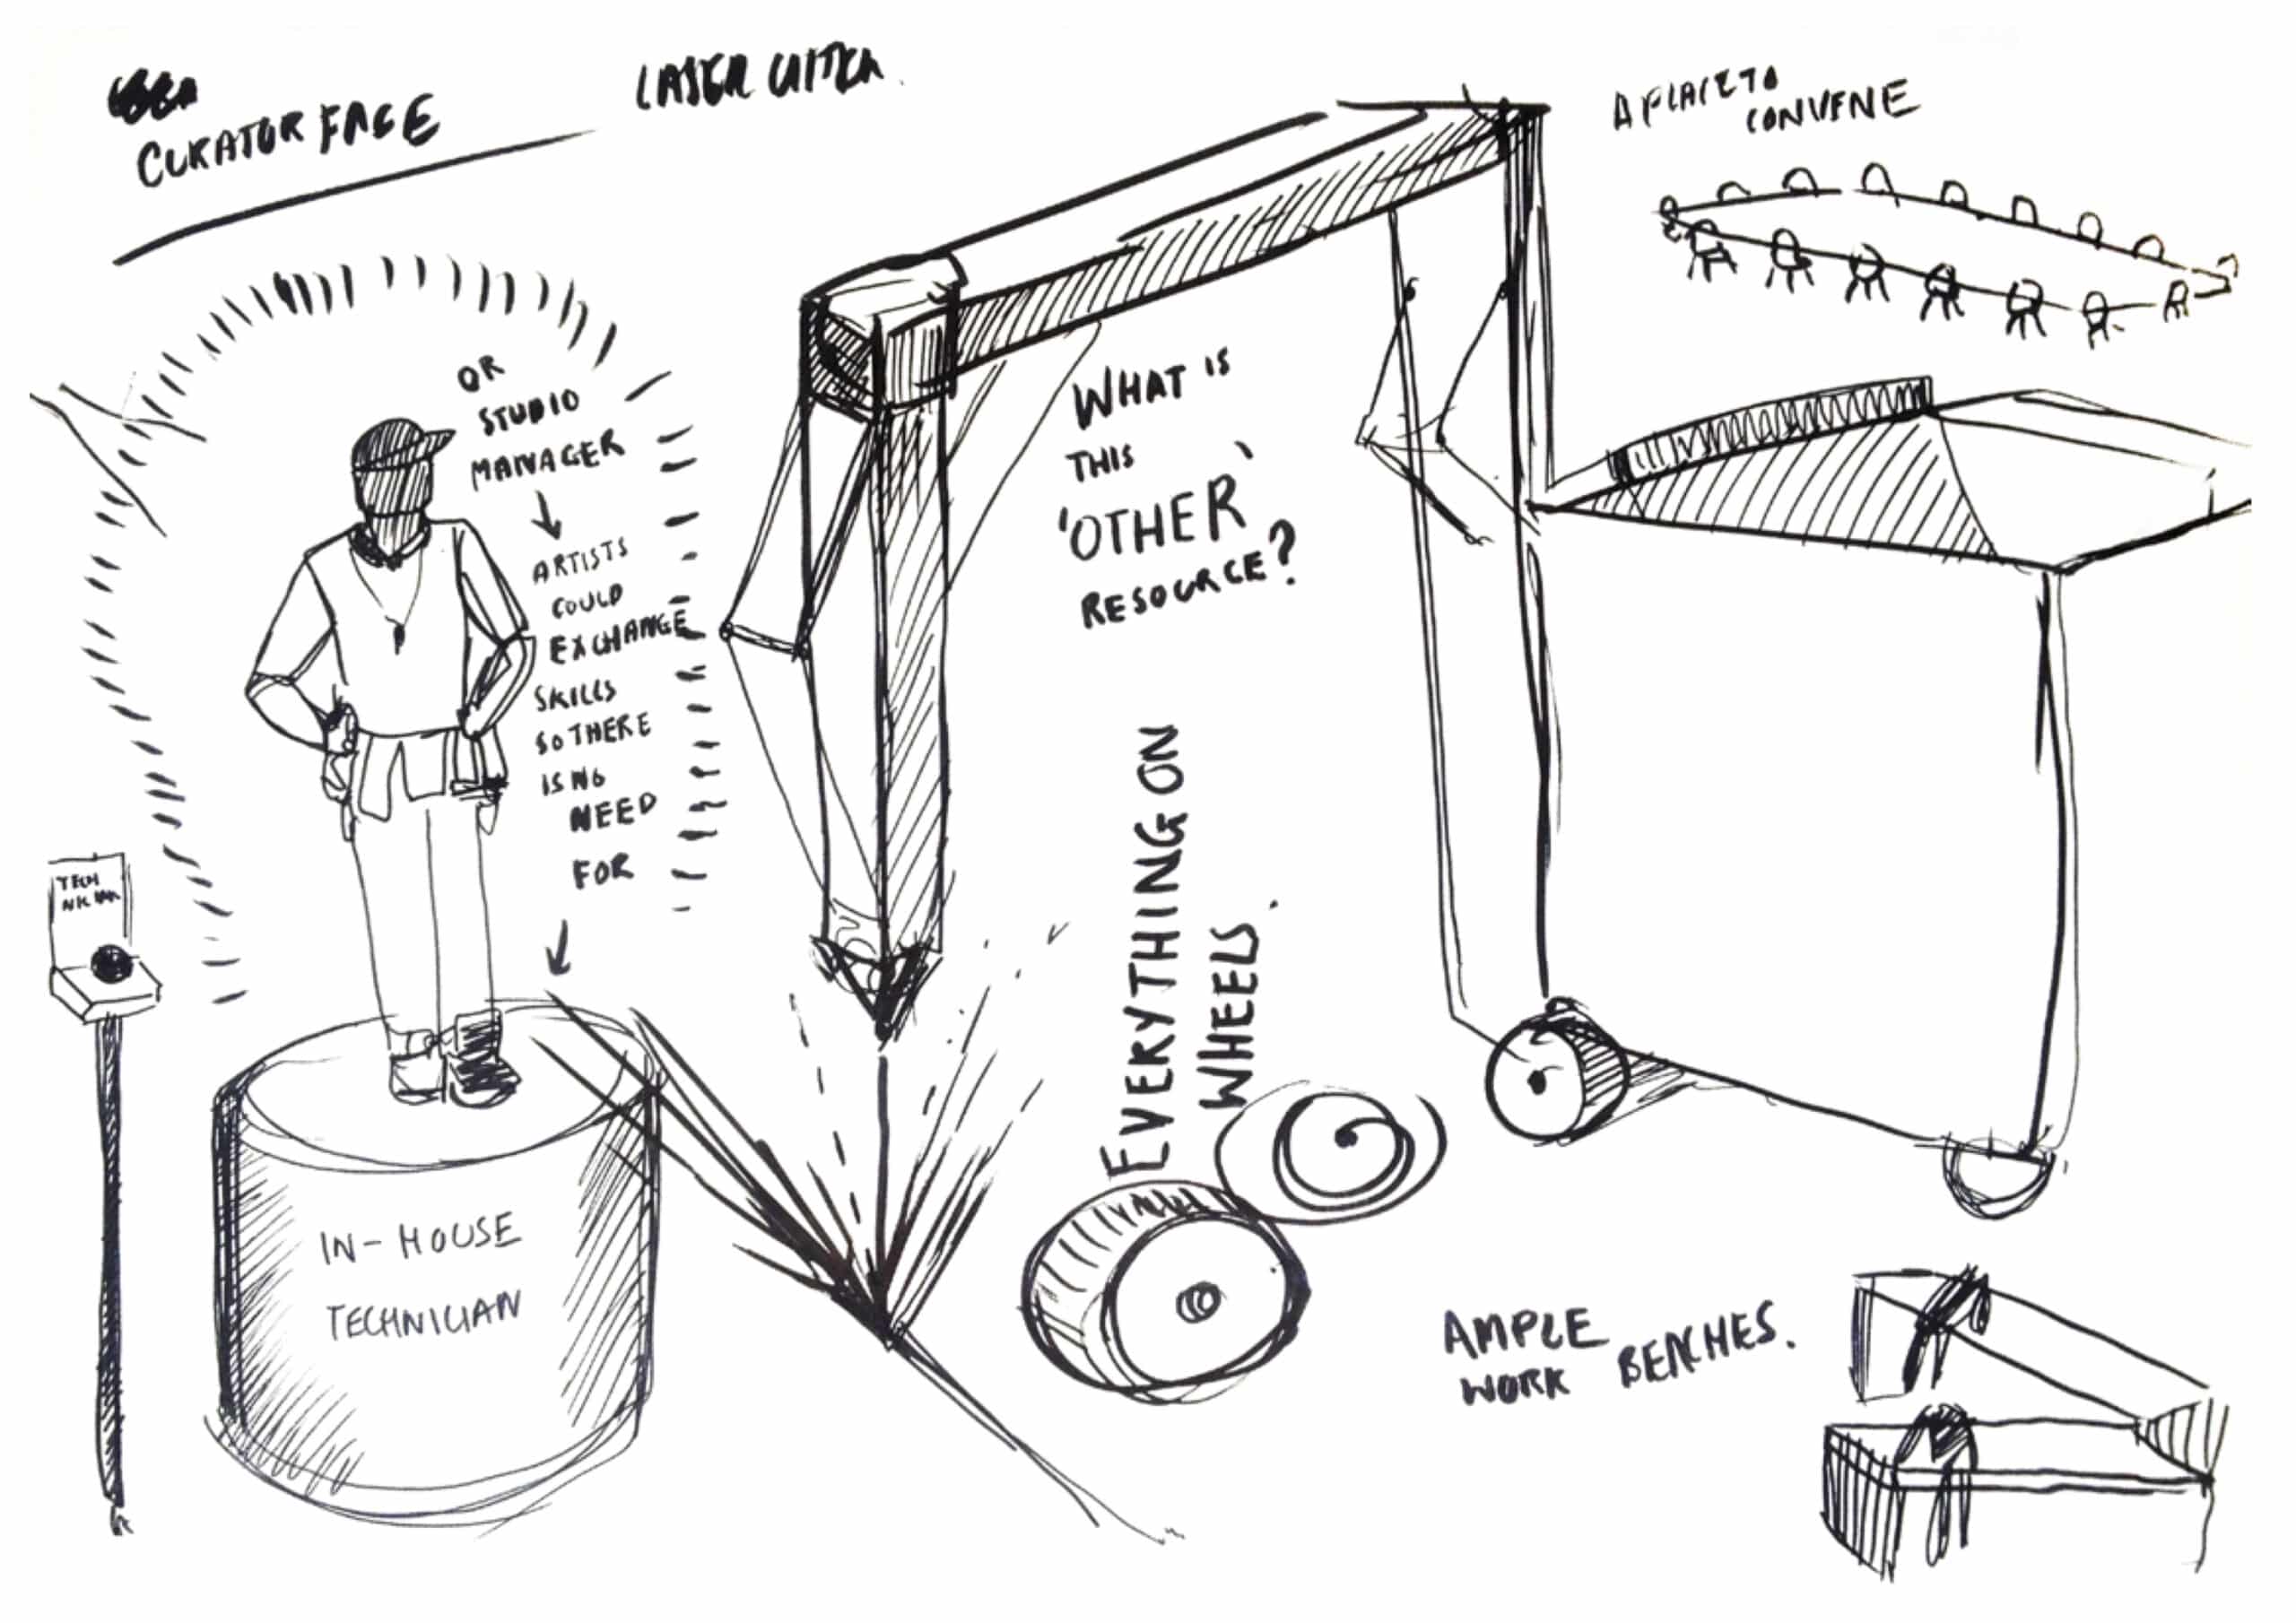 CURATOR FACE
LASER CUTTER.
A PLACE TO
CONVENE
OR
STUDIO
MANAGER
ARTISTS
COULD
EXCHANGE
SKILLS
SO THERE
IS NO
NEED
FOR
WHAT IS
THIS
'OTHER'
RESOURCE?
EVERYTHING ON
WHEELS.
TECH
IN-HOUSE
TECHNICIAN
AMPLE
WORK BENCHES.